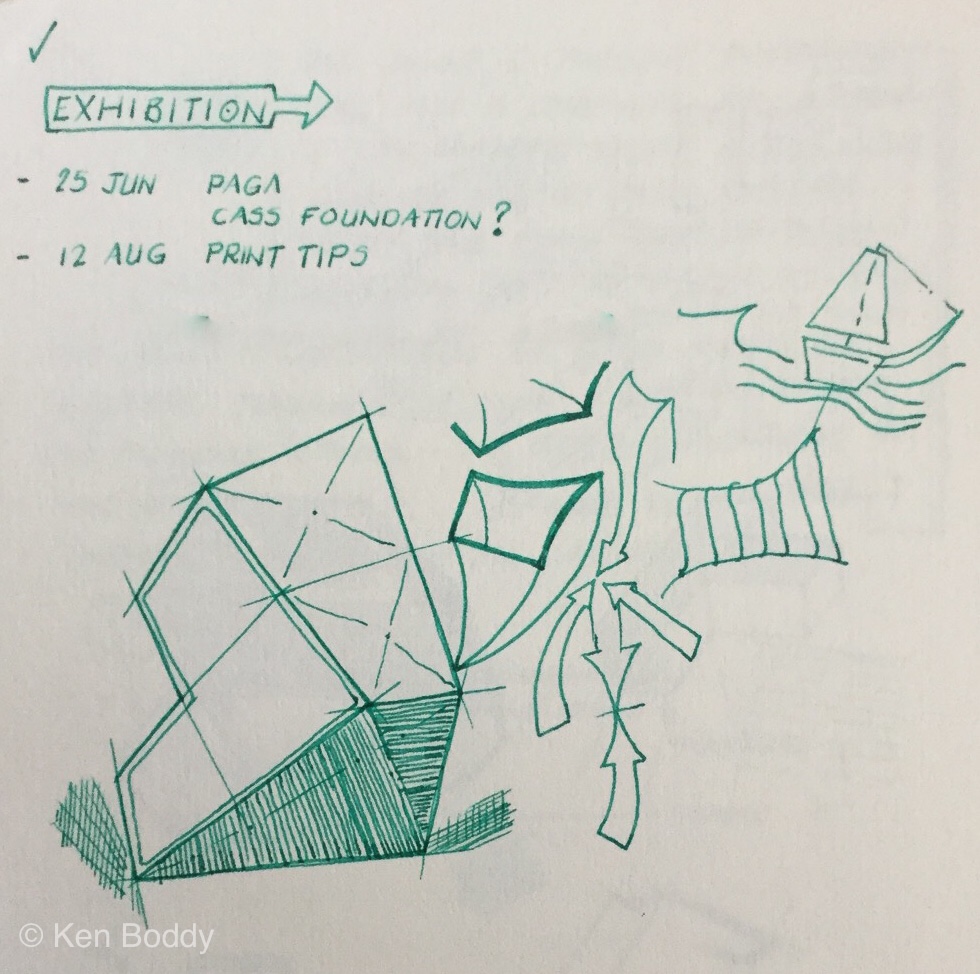 EXHIBITION
- 25 JUN PAGA
CASS FOUNDATION?
- 12 AUG PRINT TIPS
© Ken Boddy